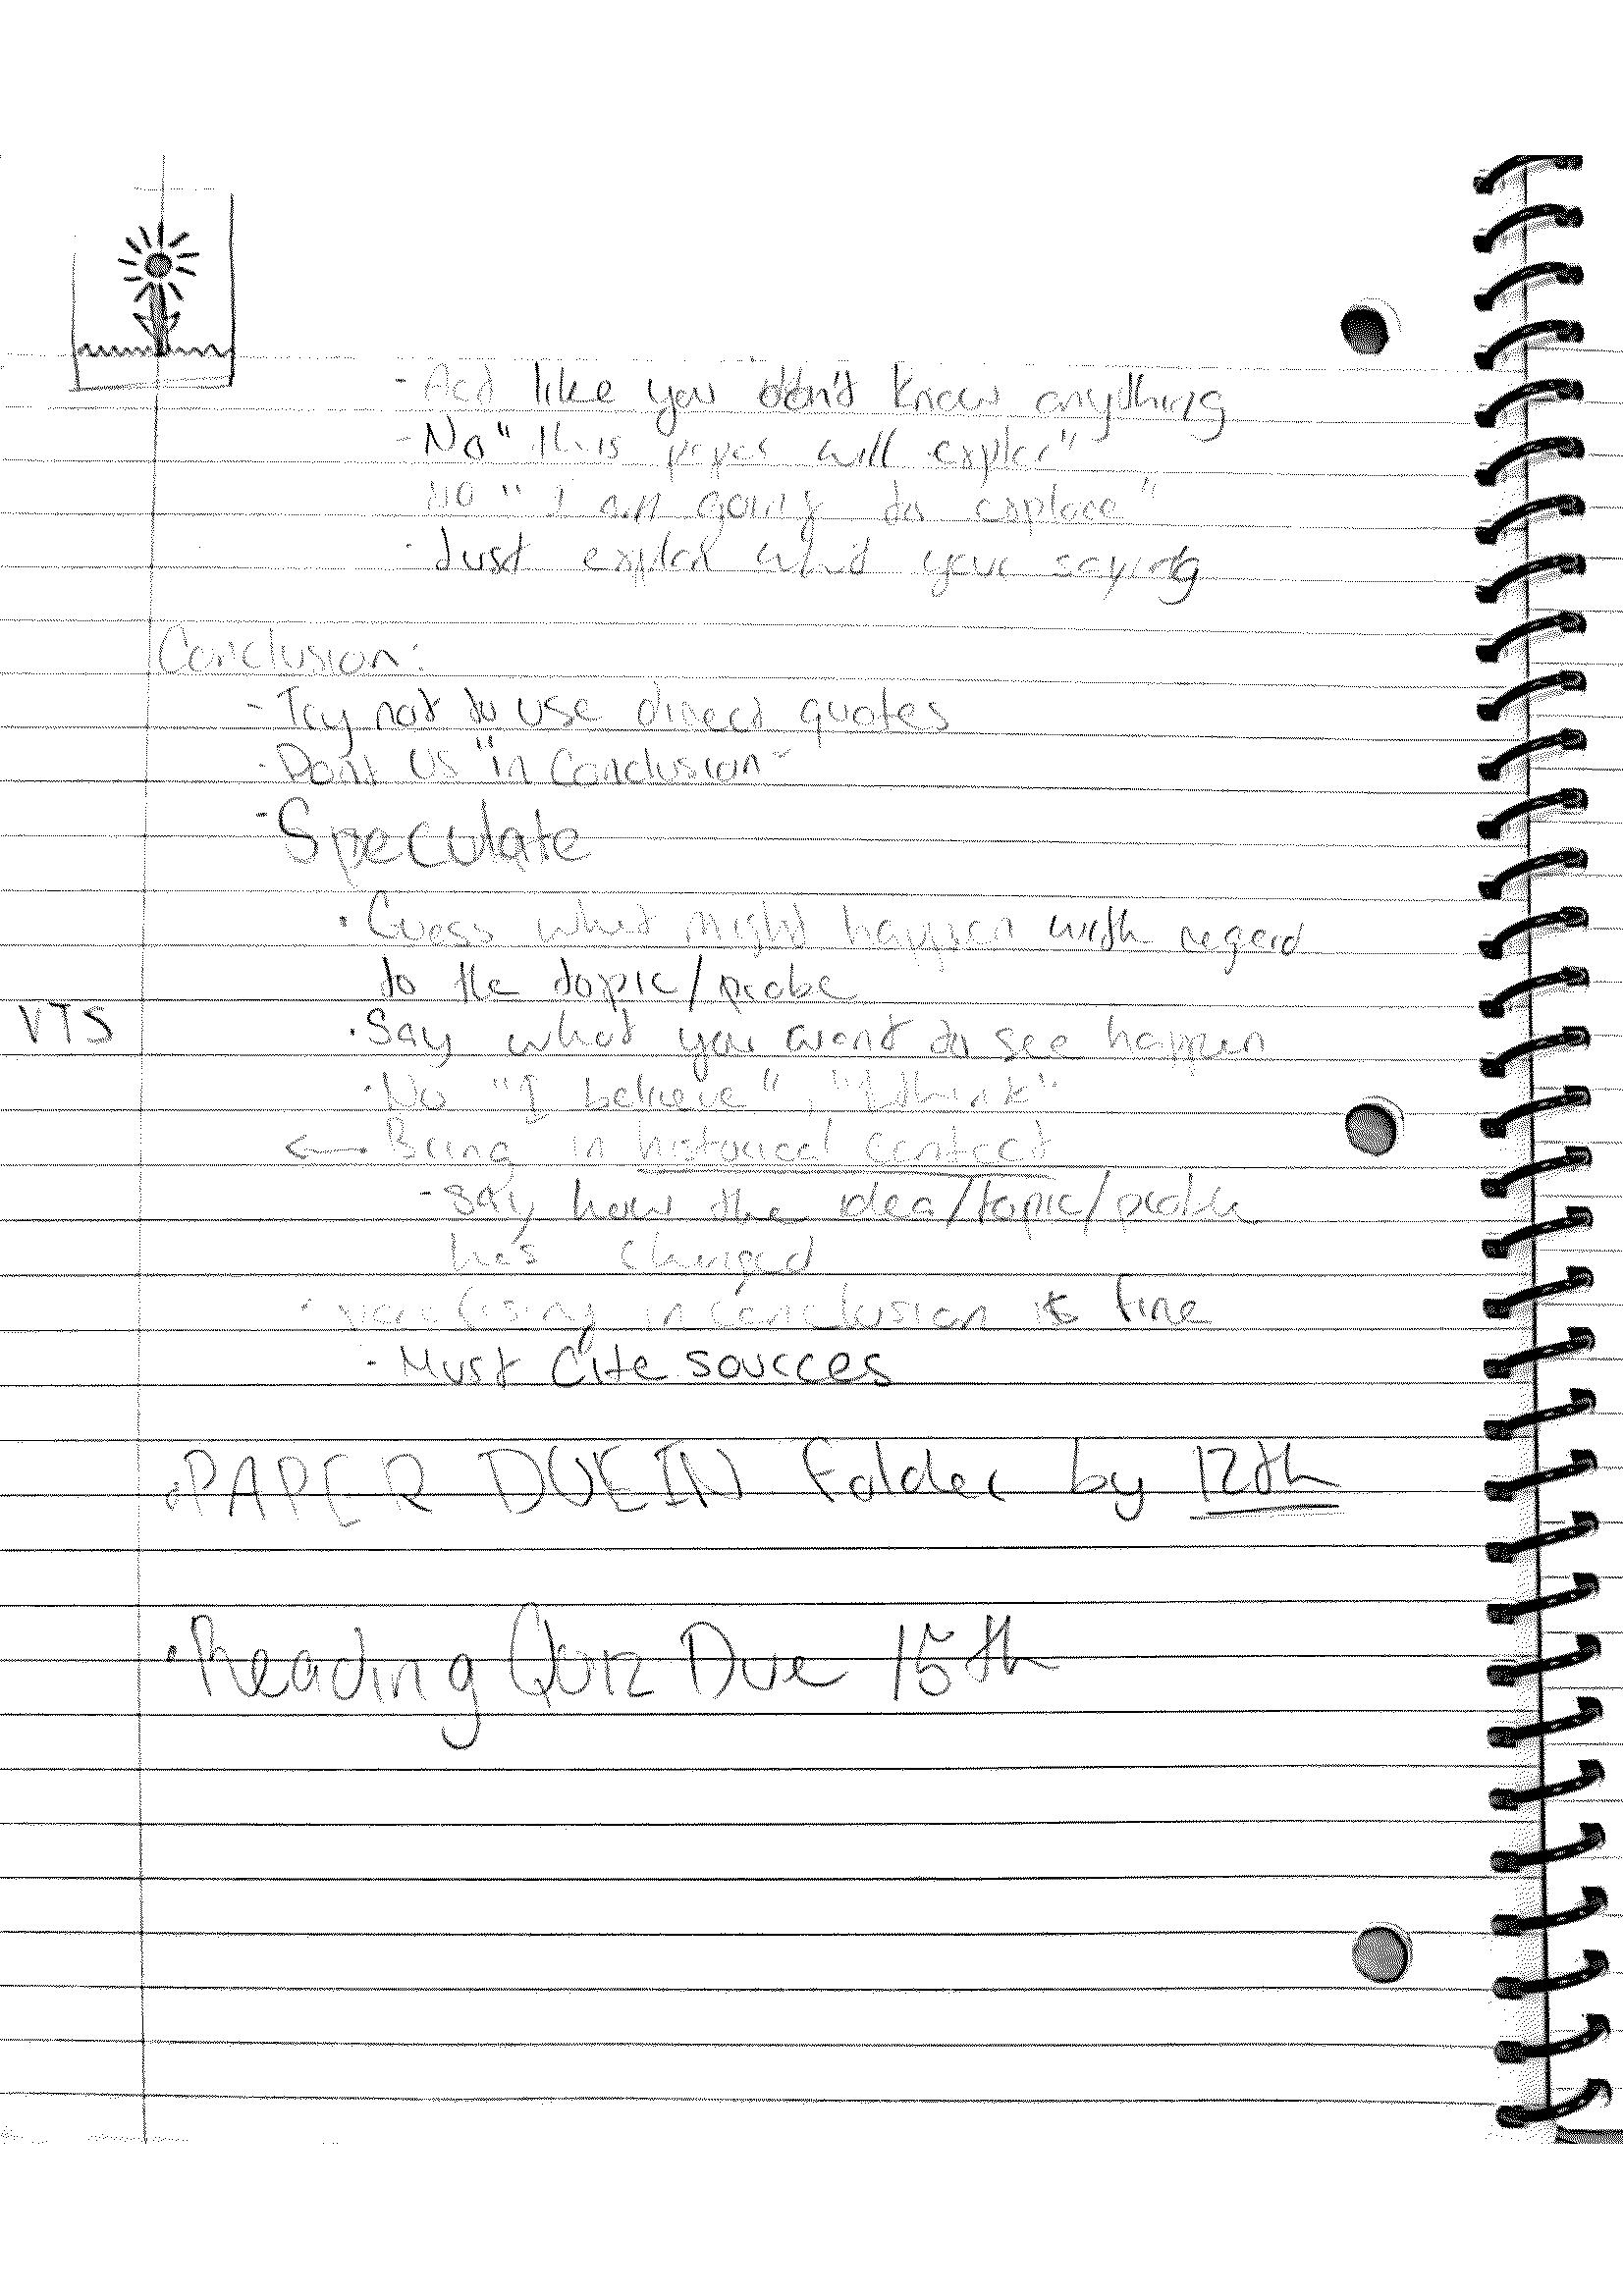 - Act like you didn't know anything
- No "this paper will explor"
No "I am going to explore"
· Just explan what your saying
Conclusion:
- Try not to use direct quotes
· Dont Us "in Conclusion"
- Speculate
· Guess what might happen with regard
to the topic/probe
VTS · Say what you want to see happen
· No "I believe", "I think"
← Bring in historical context
- say how the idea/topic/proble
has changed
· in conclusion is fine
- Must Cite sources
· PAPER DUE IN Folder by 12th
· Reading Quiz Due 15th